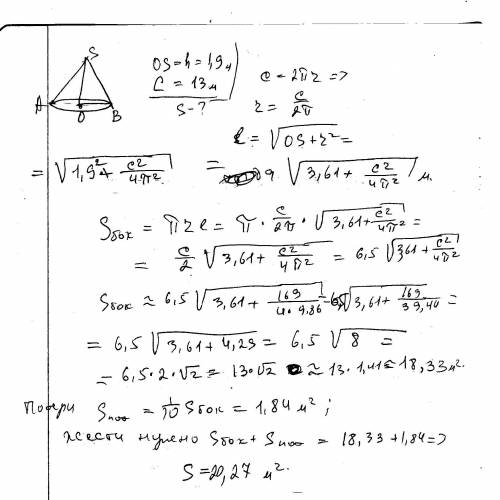 S
A O B
OS = h = 1,9 м
C = 13 м
S - ?
c = 2πr =>
r = c/2π
l = √(OS + r²) =
= √(1,9² + c²/4π²) = √(3,61 + c²/4π²) м
Sбок = πrl = π · c/2π · √(3,61 + c²/4π²) =
= c/2 √(3,61 + c²/4π²) = 6,5 √(3,61 + c²/4π²)
Sбок ≈ 6,5 √(3,61 + 169/4·9,86) = 6,5 √(3,61 + 169/39,44) =
= 6,5 √(3,61 + 4,29) = 6,5 √8 =
= 6,5 · 2 · √2 = 13·√2 ≈ 13 · 1,41 = 18,33 м².
Потери Sпот = 1/10 Sбок = 1,84 м²;
жести нужно Sбок + Sпот = 18,33 + 1,84 =>
S = 20,27 м².